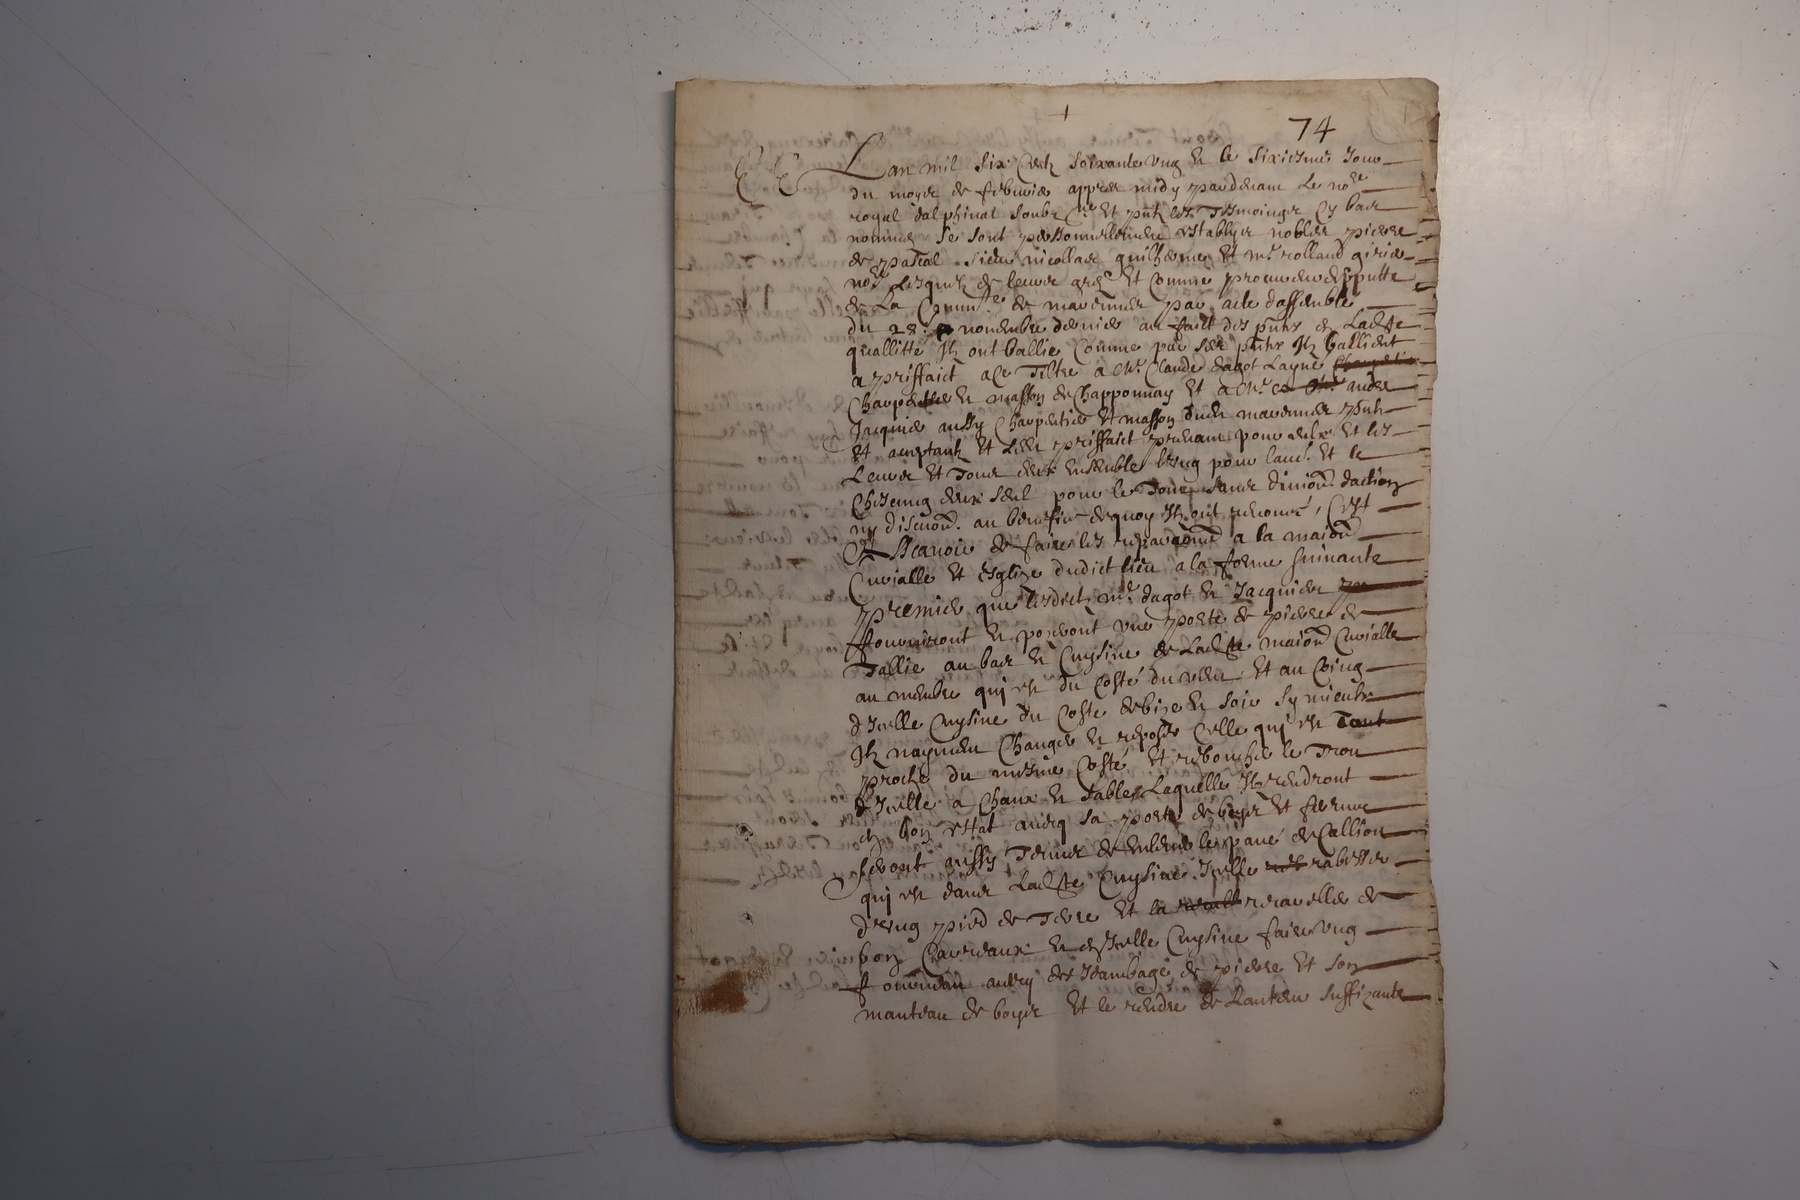 74
Lan mil six centz soixante ung et le sixiesme jour
du moys de febvrier appres midy pardevant le nore
royal dalphinal soubz.ne et pntz les tesmoingtz cy bas
nommes se sont personnellement establys nobles pierre
de pascal sieur nicollas guilherme et mr rolland girier
nore lesquelz de leurs grez et comme procureurs depputtes
de la Commte de marennes par acte dassemblé
du 28: novembre dernier au faict des pntes en ladite
quallitté Ilz ont ballie comme par ses pntes Ilz baillient
a priffaict a ce tiltre a Mr Claude dagot layné
Charpentier et masson de Chapponnay et a Mr andre
Jacquier aussy Charpentier et masson dudit marennes pntz
et acceptantz et ledit priffaict prenant pour eulx et les
leurs et tous deux ensemble lung pour lautre et le
chescung deux seul pour le tout sans division daction
ny discution. au benefice dequoy Ilz ont renoncé, Cest
Assavoir de faire les reparaons a la maison
Curialle et Esglize dudict lieu a la forme suivante
premier que lesdictz mr dagot et Jacquier
fourniront et pozeront une porte de pierre de
tallie au bas et Cuysine de ladite maison Curialle
au membre qui est du costé du vent et au coing
d'Icelle Cuysine du coste de bize et soir sy mieulx
Ilz nayment changer et repozer celle qui est tout
proche du mesme costé et rebouscher le trou
d'Icelle a chaux et sable, laquelle Ilz rendront
en bon estat avecq sa porte de boys et ferrure
seront aussy tenus de enlever le pavé de Callion
qui est dans ladite Cuysine Icelle rabesser
d'eung pied de terre et la recareller de
bon Carreaux et en Icelle Cuysine faire ung
fourneau avecq des Jambages de pierre et son
manteau de boys et le rendre de lauteur suffizante